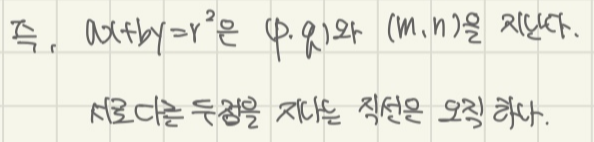 즉, ax+by=r²은 (p.q)와 (m.n)을 지난다.
서로다른 두점을 지나는 직선은 오직 하나.